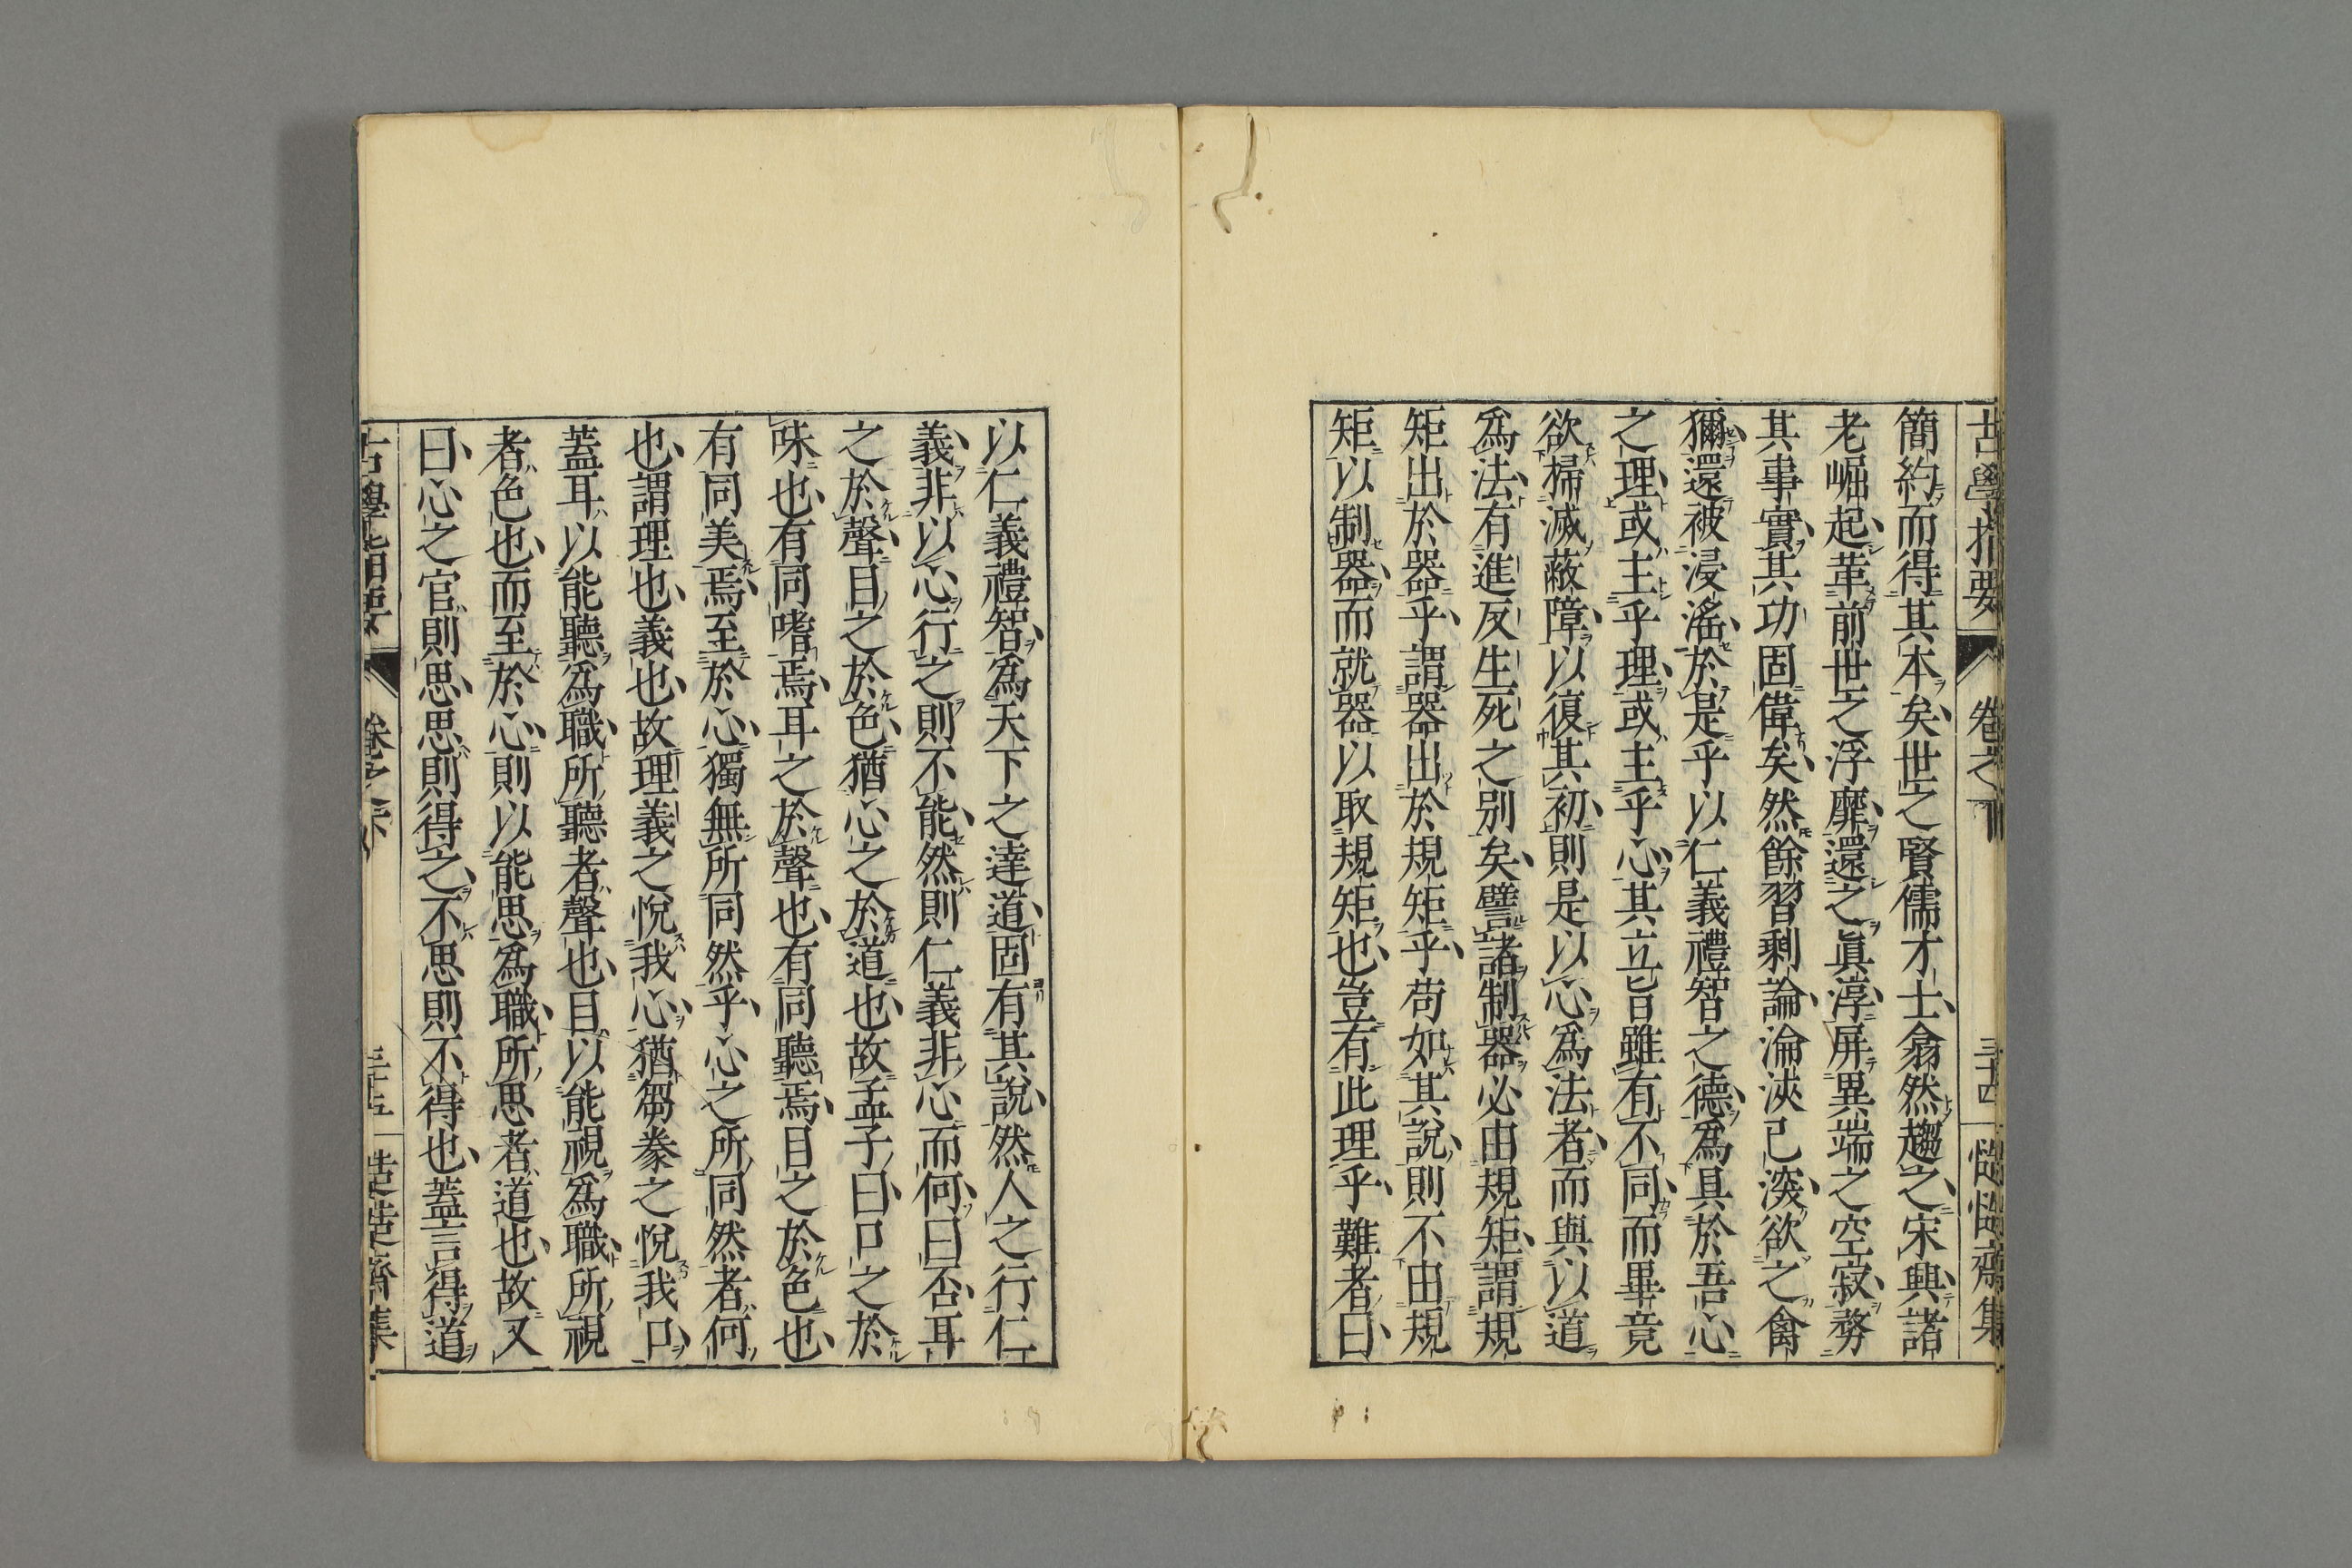 古學指要 卷之下 三十四 慥慥齋集
簡約而得其本矣世之賢儒才士翕然趨之宋興諸
老崛起革前世之浮靡還之眞淳屏異端之空寂務
其事實其功固偉矣然餘習剩論淪浹已深欲之禽
獮還被浸淫於是乎以仁義禮智之德爲具於吾心
之理或主乎理或主乎心其立旨雖有不同而畢竟
欲掃滅蔽障以復其初則是以心爲法者而與以道
爲法有進反生死之別矣譬諸制器必由規矩謂規
矩出於器乎謂器出於規矩乎苟如其說則不由規
矩以制器而就器以取規矩也豈有此理乎難者曰
以仁義禮智爲天下之達道固有其說然人之行仁
義非以心行之則不能然則仁義非心而何曰否耳
之於聲目之於色猶心之於道也故孟子曰口之於
味也有同嗜焉耳之於聲也有同聽焉目之於色也
有同美焉至於心獨無所同然乎心之所同然者何
也謂理也義也故理義之悅我心猶芻豢之悅我口
蓋耳以能聽爲職所聽者聲也目以能視爲職所視
者色也而至於心則以能思爲職所思者道也故又
曰心之官則思思則得之不思則不得也蓋言得道
古學指要 卷之下 三十五 慥慥齋集